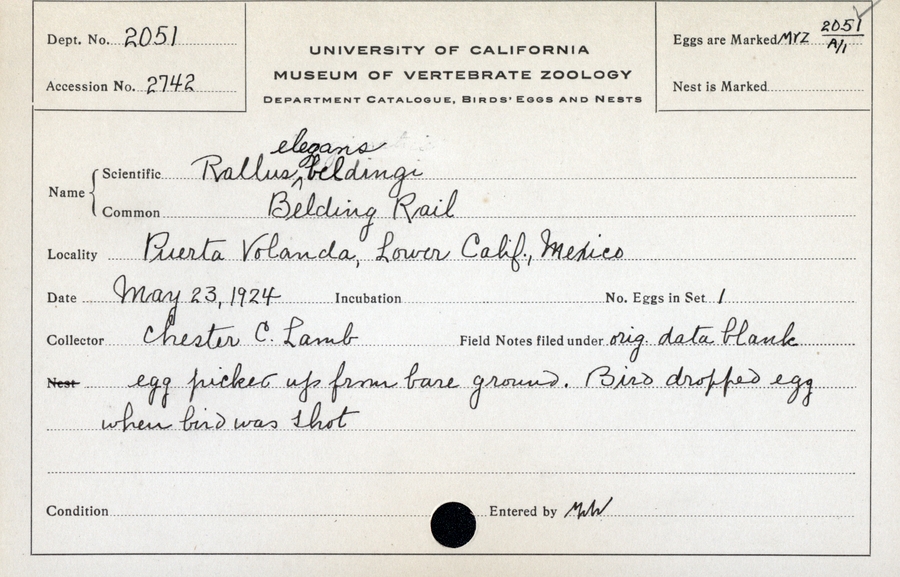 Dept. No. 2051
Accession No. 2742
UNIVERSITY OF CALIFORNIA
MUSEUM OF VERTEBRATE ZOOLOGY
DEPARTMENT CATALOGUE, BIRDS' EGGS AND NESTS
Eggs are Marked MVZ 2051
A/1
Nest is Marked
elegans
Name Scientific Rallus ^ beldingi
Common Belding Rail
Locality Puerta Volanda, Lower Calif., Mexico
Date May 23, 1924 Incubation No. Eggs in Set 1
Collector Chester C. Lamb Field Notes filed under orig. data blank
Nest egg picked up from bare ground. Bird dropped egg
when bird was shot
Condition Entered by